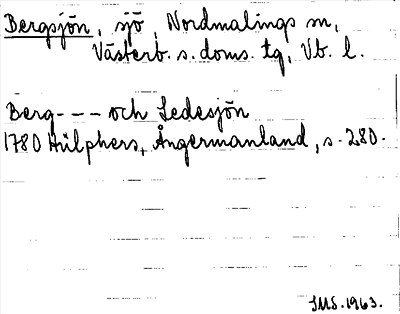 Bergsjön, sjö, Nordmalings sn,
Västerb. s. doms. tg, Vb. l.
Berg - - - och Ledesjön
1780 Hülphers, Ångermanland, s. 280.
IMS. 1963.